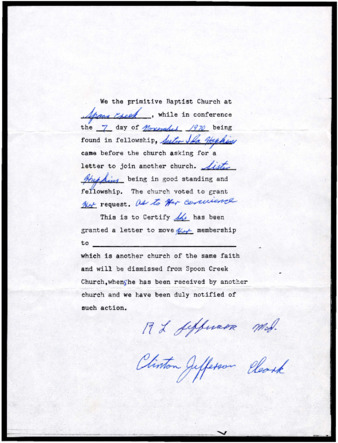 We the primitive Baptist Church at
Spoon Creek, while in conference
the 7 day of November 1970 being
found in fellowship, Sister Ida Hopkins
came before the church asking for a
letter to join another church. Sister
Hopkins being in good standing and
fellowship. The church voted to grant
Her request. as to Her convience
This is to Certify She has been
granted a letter to move Her membership
to
which is another church of the same faith
and will be dismissed from Spoon Creek
Church,when,he has been received by another
church and we have been duly notified of
such action.
R L Jefferson Md.
Clinton Jefferson Cleark